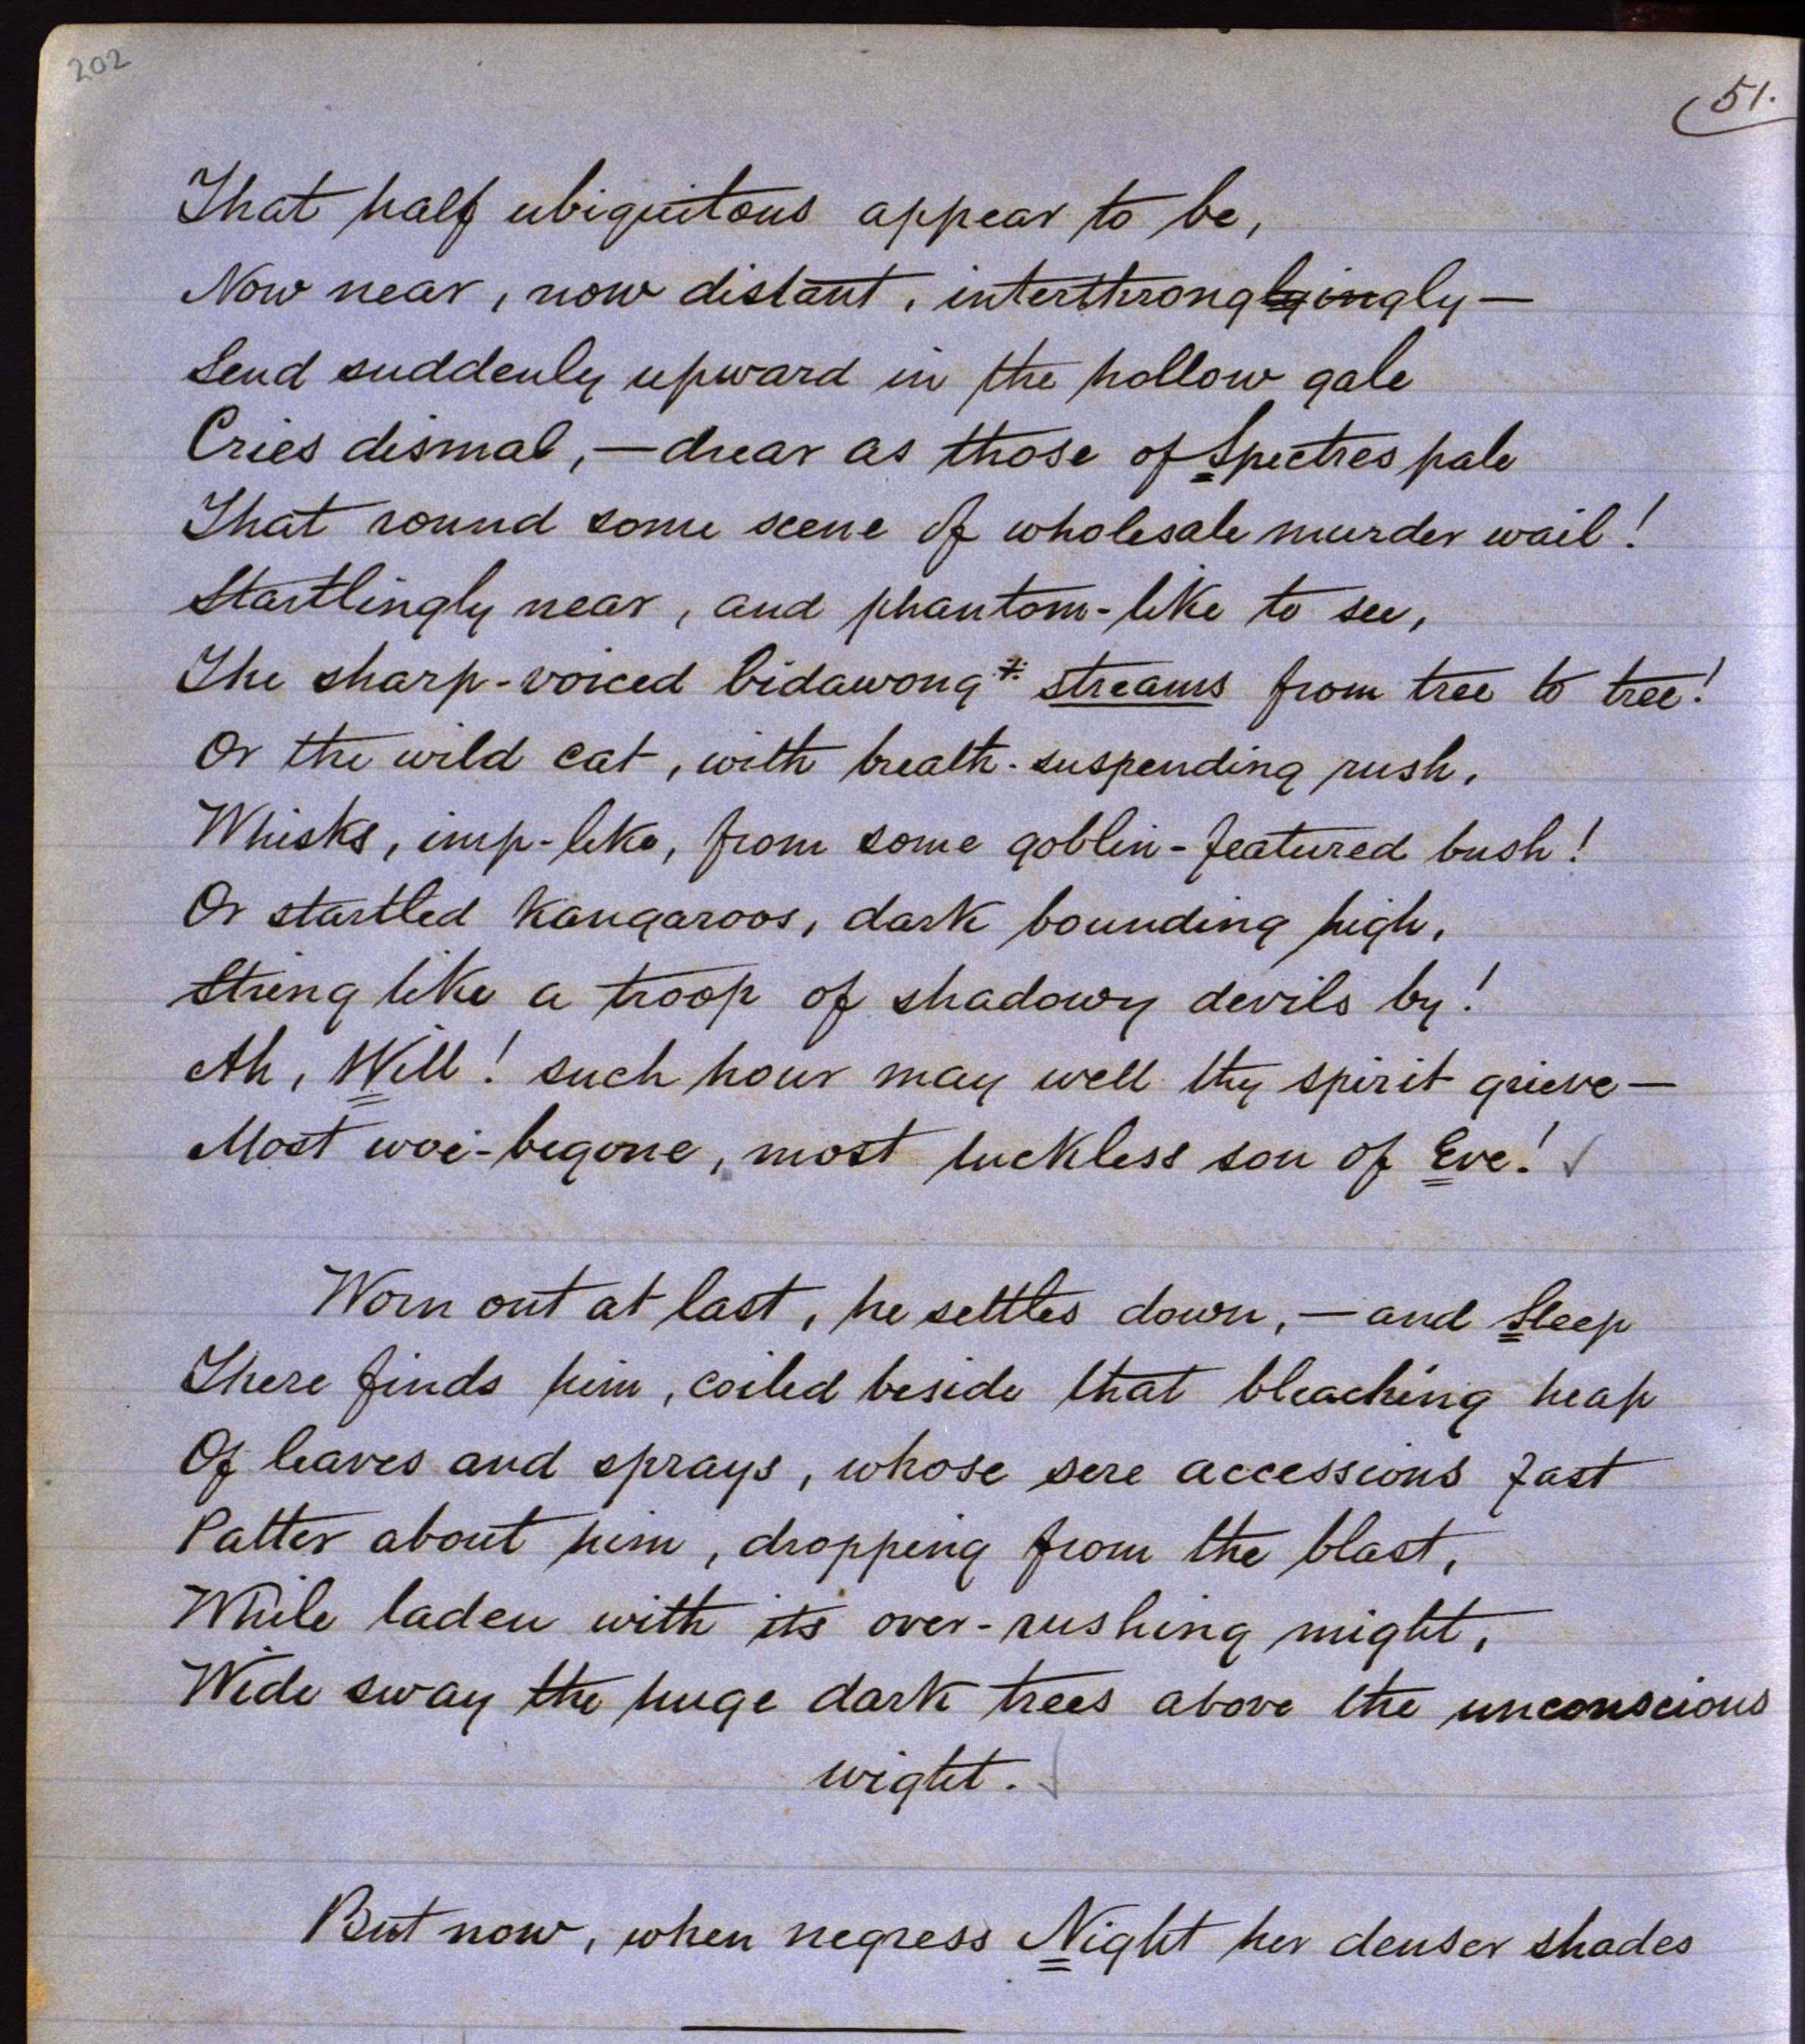 202
51.
That half ubiquitous appear to be,
Now near, now distant, interthrongingly—
Send suddenly upward in the hollow gale
Cries dismal,—drear as those of Spectres pale
That round some scene of wholesale murder wail!
Startlingly near, and phantom-like to see,
The sharp-voiced bidawong* streams from tree to tree!
Or the wild cat, with breath-suspending rush,
Whisks, imp-like, from some goblin-featured bush!
Or startled Kangaroos, dark bounding high,
String like a troop of shadowy devils by!
Ah, Will! such hour may well thy spirit grieve—
Most woe-begone, most luckless son of Eve!
Worn out at last, he settles down,—and Sleep
There finds him, coiled beside that bleaching heap
Of leaves and sprays, whose sere accessions fast
Patter about him, dropping from the blast,
While laden with its over-rushing might,
Wide sway the huge dark trees above the unconscious
wight.
But now, when negress Night her denser shades